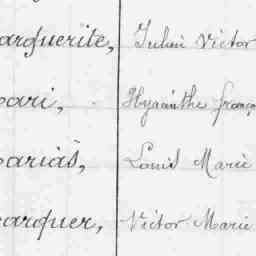 arguerite, Julien Victor
ari, Hyacinthe franço
arias, Louis Marie
arquer, Victor Marie